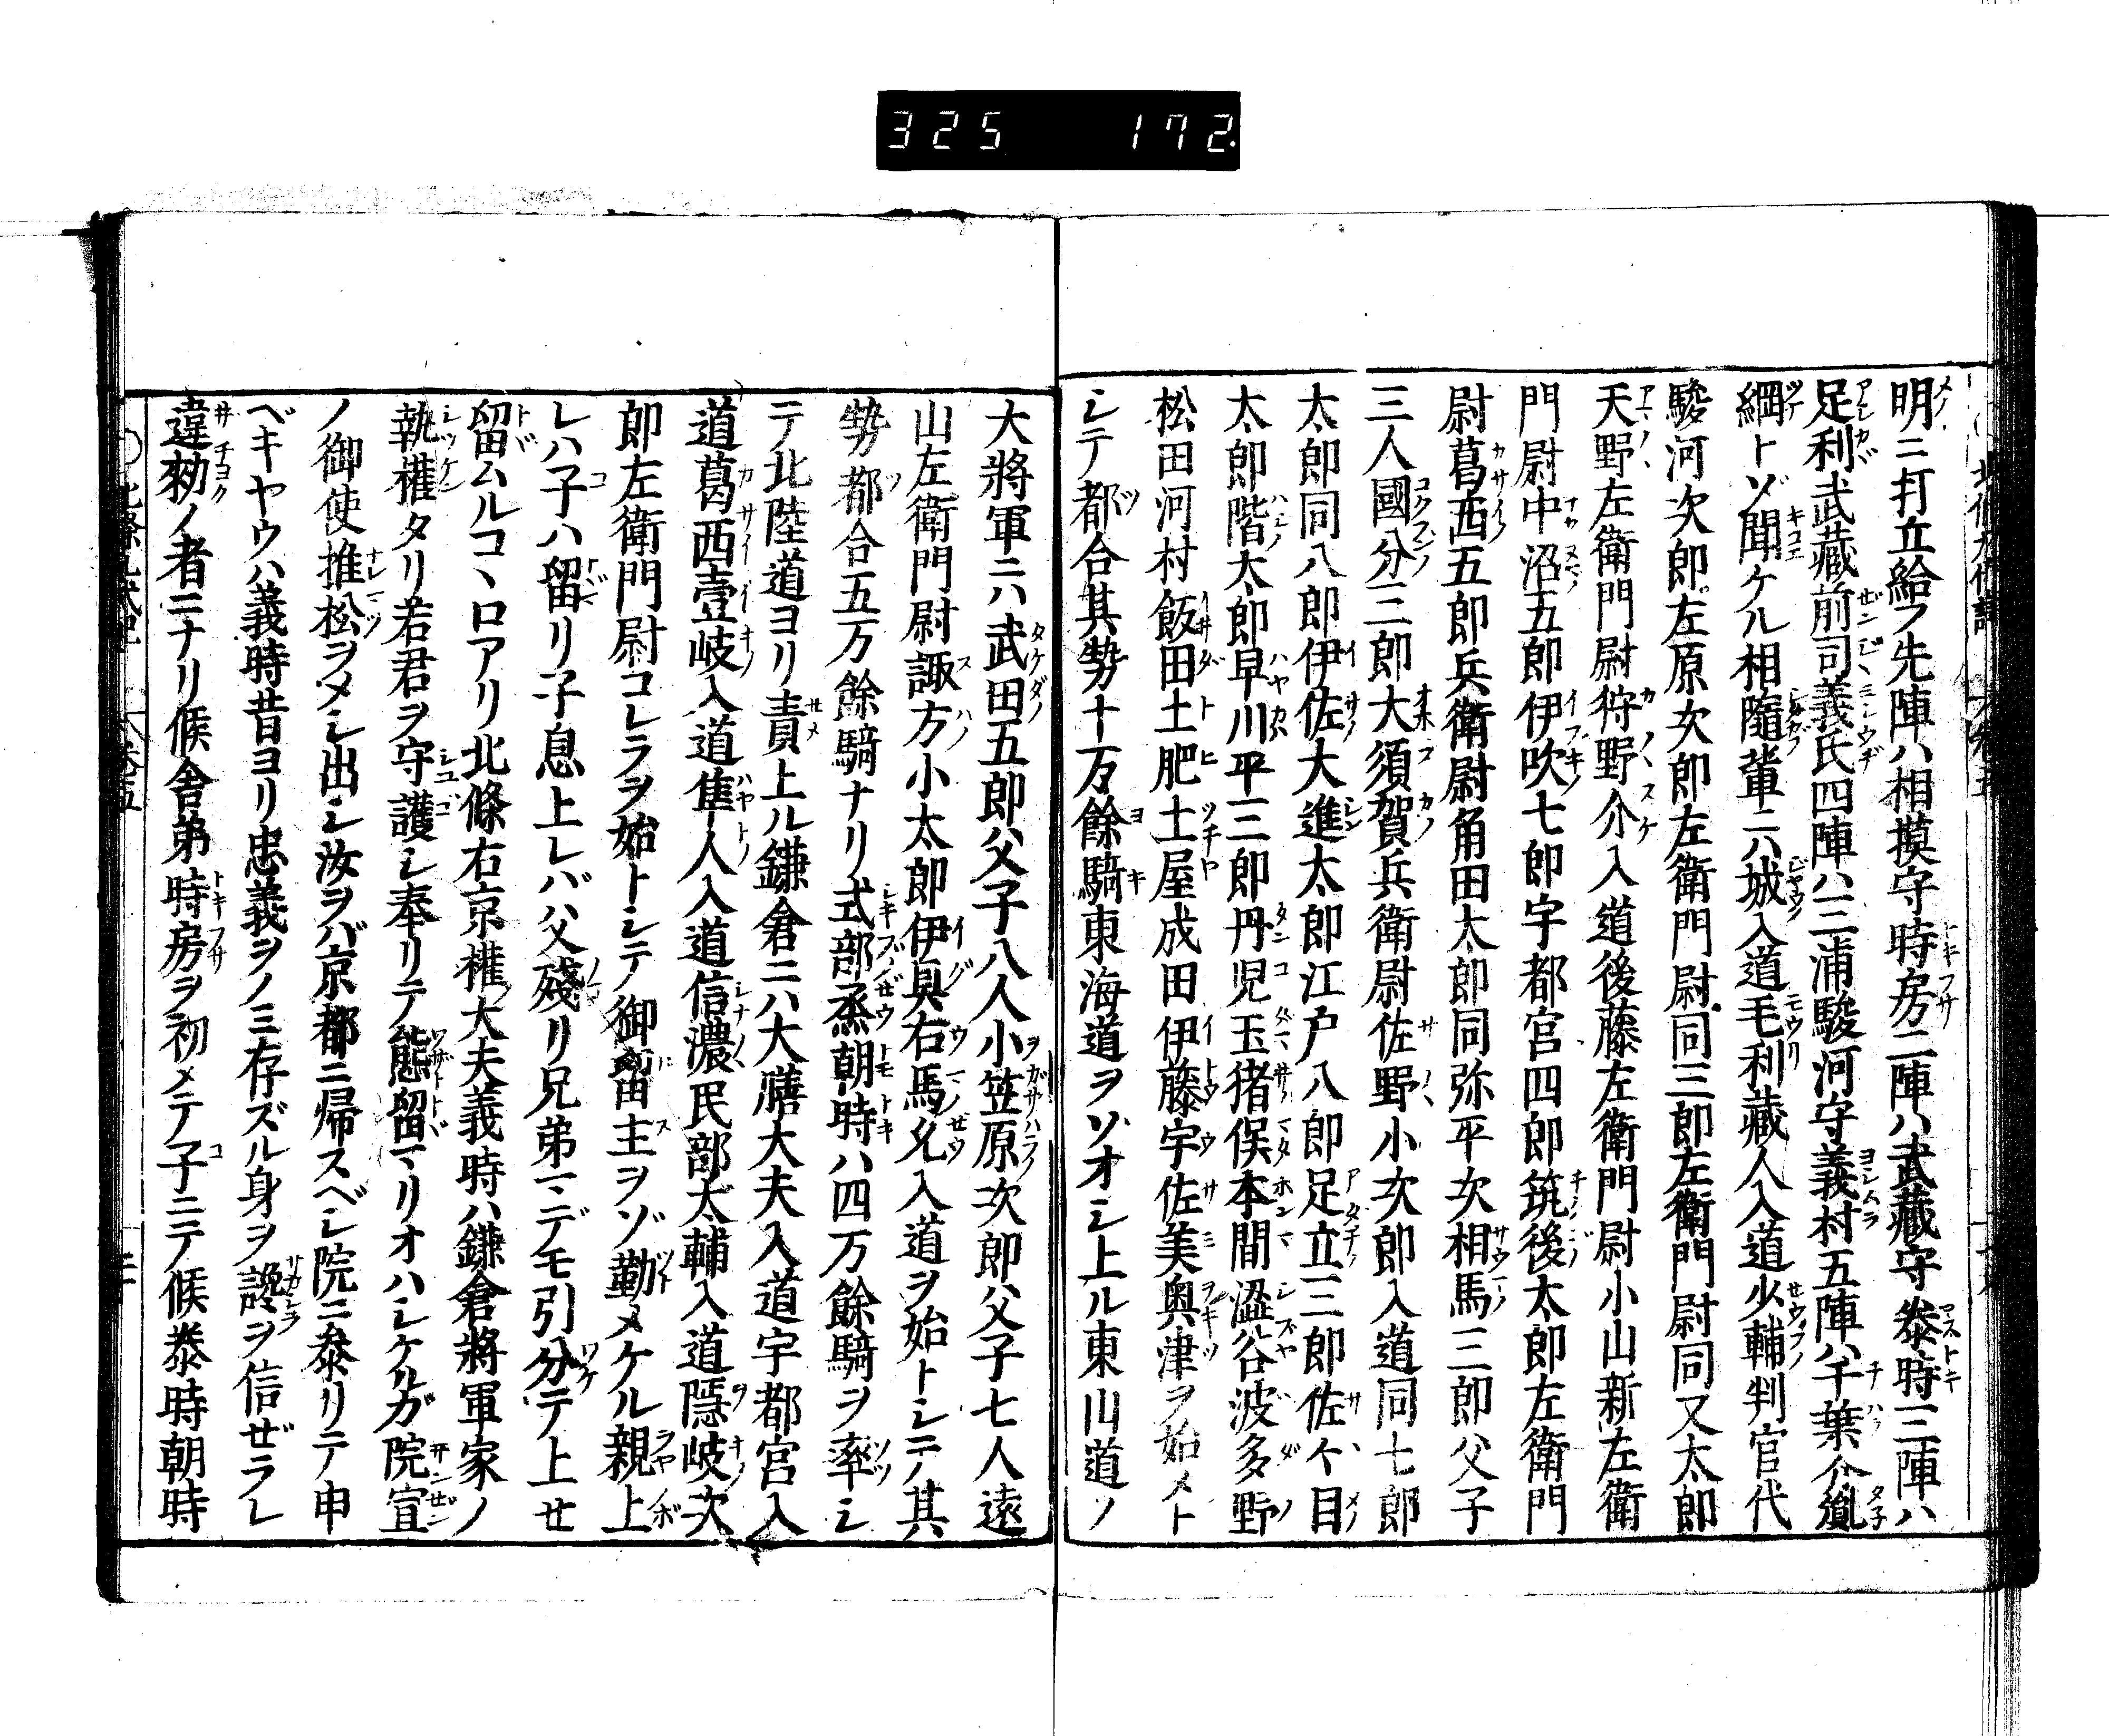 325 172.
明ニ打立給フ先陣ハ相摸守時房二陣ハ武藏守泰時三陣ハ
足利武藏前司義氏四陣ハ三浦駿河守義村五陣ハ千葉介胤
綱トゾ聞ケル相隨輩ニハ城入道毛利藏人入道少輔判官代
駿河次郎左原次郎左衛門尉同三郎左衛門尉同又太郎
天野左衛門尉狩野介入道後藤左衛門尉小山新左衛
門尉中沼五郎伊吹七郎宇都宮四郎筑後太郎左衛門
尉葛西五郎兵衛尉角田太郎同弥平次相馬三郎父子
三人國分三郎大須賀兵衛尉佐野小次郎入道同七郎
太郎同八郎伊佐大進太郎江戸八郎足立三郎佐々目
太郎階太郎早川平三郎丹児玉猪俣本間澁谷波多野
松田河村飯田土肥土屋成田伊藤宇佐美奥津ヲ始メト
シテ都合其勢十万餘騎東海道ヲソオシ上ル東山道ノ
大將軍ニハ武田五郎父子八人小笠原次郎父子七人遠
山左衛門尉諏方小太郎伊具右馬允入道ヲ始トシテ其
勢都合五万餘騎ナリ式部烝朝時ハ四万餘騎ヲ率シ
テ北陸道ヨリ責上ル鎌倉ニハ大膳大夫入道宇都宮入
道葛西壹岐入道隼人入道信濃民部太輔入道隠岐次
郎左衛門尉コレラヲ始トシテ御留主ヲゾ勤メケル親上
レハ子ハ留リ子息上レバ父殘リ兄弟マデモ引分テ上せ
留ムルコヽロアリ北條右京權大夫義時ハ鎌倉將軍家ノ
執權タリ若君ヲ守護シ奉リテ態留マリオハシケルガ院宣
ノ御使推松ヲメシ出シ汝ヲバ京都ニ帰スベシ院ニ參リテ申
ベキヤウハ義時昔ヨリ忠義ヲノミ存ズル身ヲ讒ヲ信ぜラレ
違勅ノ者ニナリ候舎弟時房ヲ初メテ子ニテ候泰時朝時